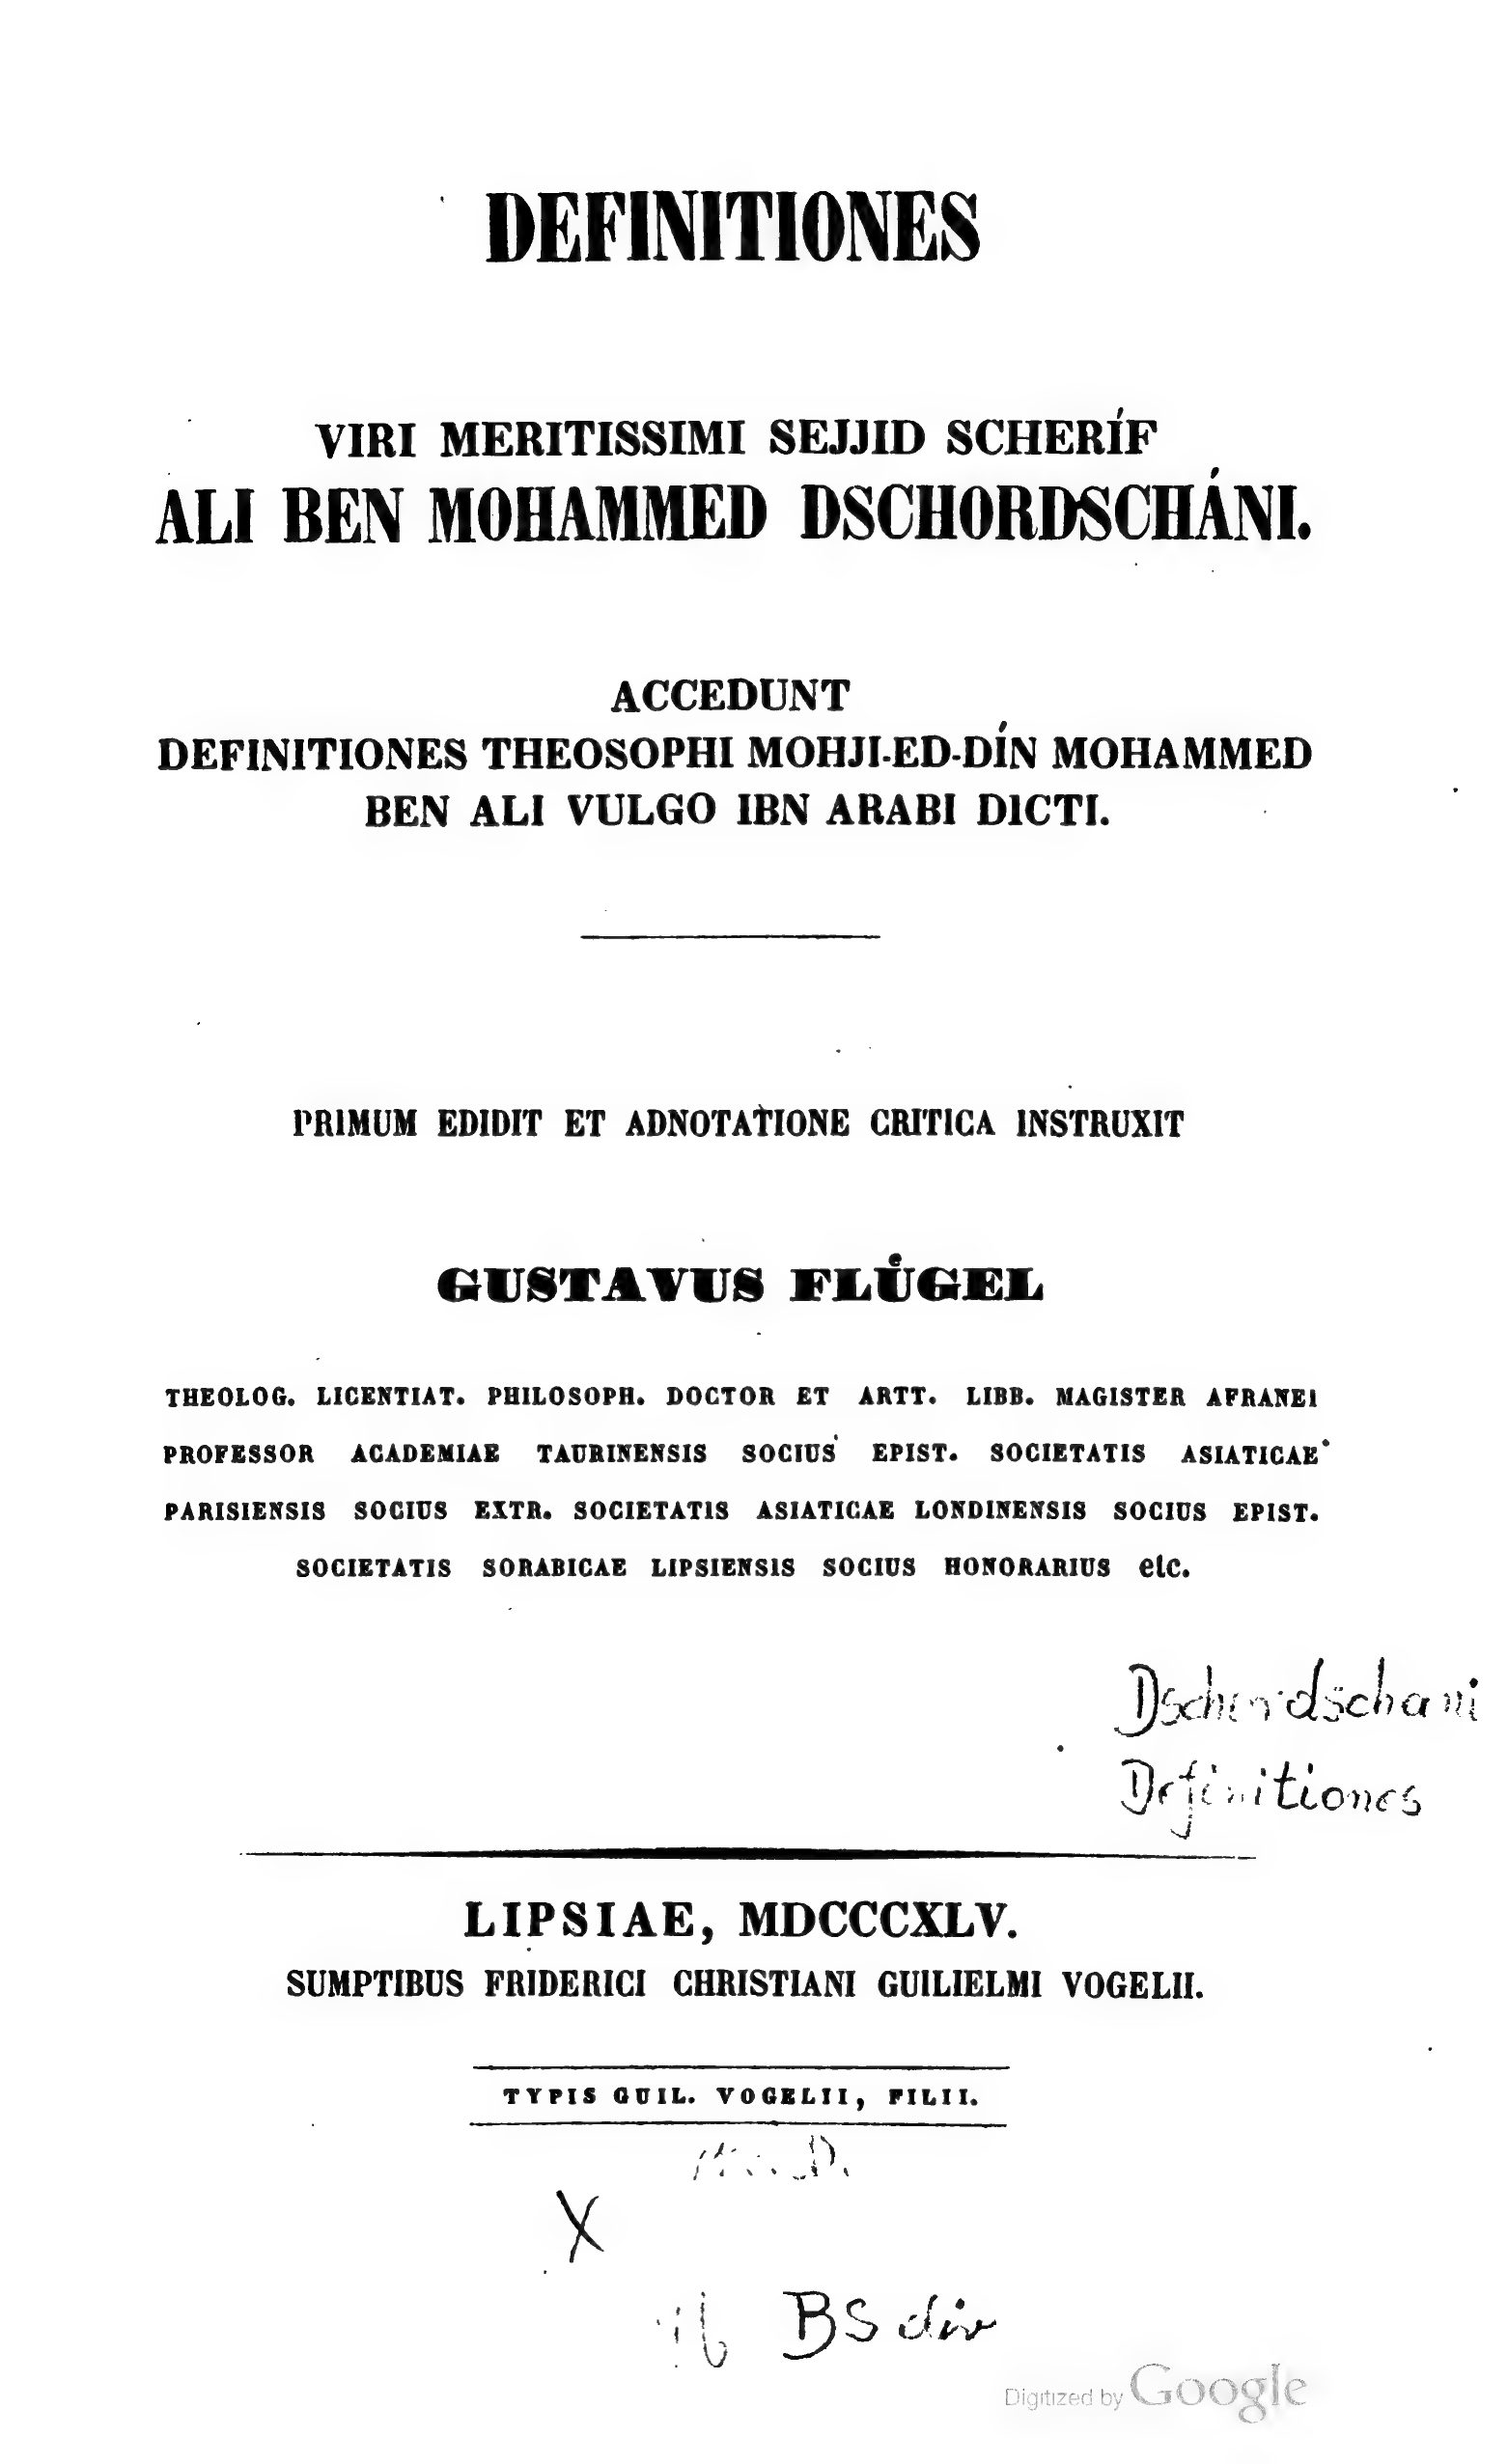 DEFINITIONES
VIRI MERITISSIMI SEJJID SCHERÍF
ALI BEN MOHAMMED DSCHORDSCHÁNI.
ACCEDUNT
DEFINITIONES THEOSOPHI MOHJI-ED-DÍN MOHAMMED
BEN ALI VULGO IBN ARABI DICTI.
PRIMUM EDIDIT ET ADNOTATIONE CRITICA INSTRUXIT
GUSTAVUS FLÜGEL
THEOLOG. LICENTIAT. PHILOSOPH. DOCTOR ET ARTT. LIBB. MAGISTER AFRANEI
PROFESSOR ACADEMIAE TAURINENSIS SOCIUS EPIST. SOCIETATIS ASIATICAE
PARISIENSIS SOCIUS EXTR. SOCIETATIS ASIATICAE LONDINENSIS SOCIUS EPIST.
SOCIETATIS SORABICAE LIPSIENSIS SOCIUS HONORARIUS etc.
Definitiones
LIPSIAE, MDCCCXLV.
SUMPTIBUS FRIDERICI CHRISTIANI GUILIELMI VOGELII.
TYPIS GUIL. VOGELII, FILII.
X
BS div
Digitized by Google